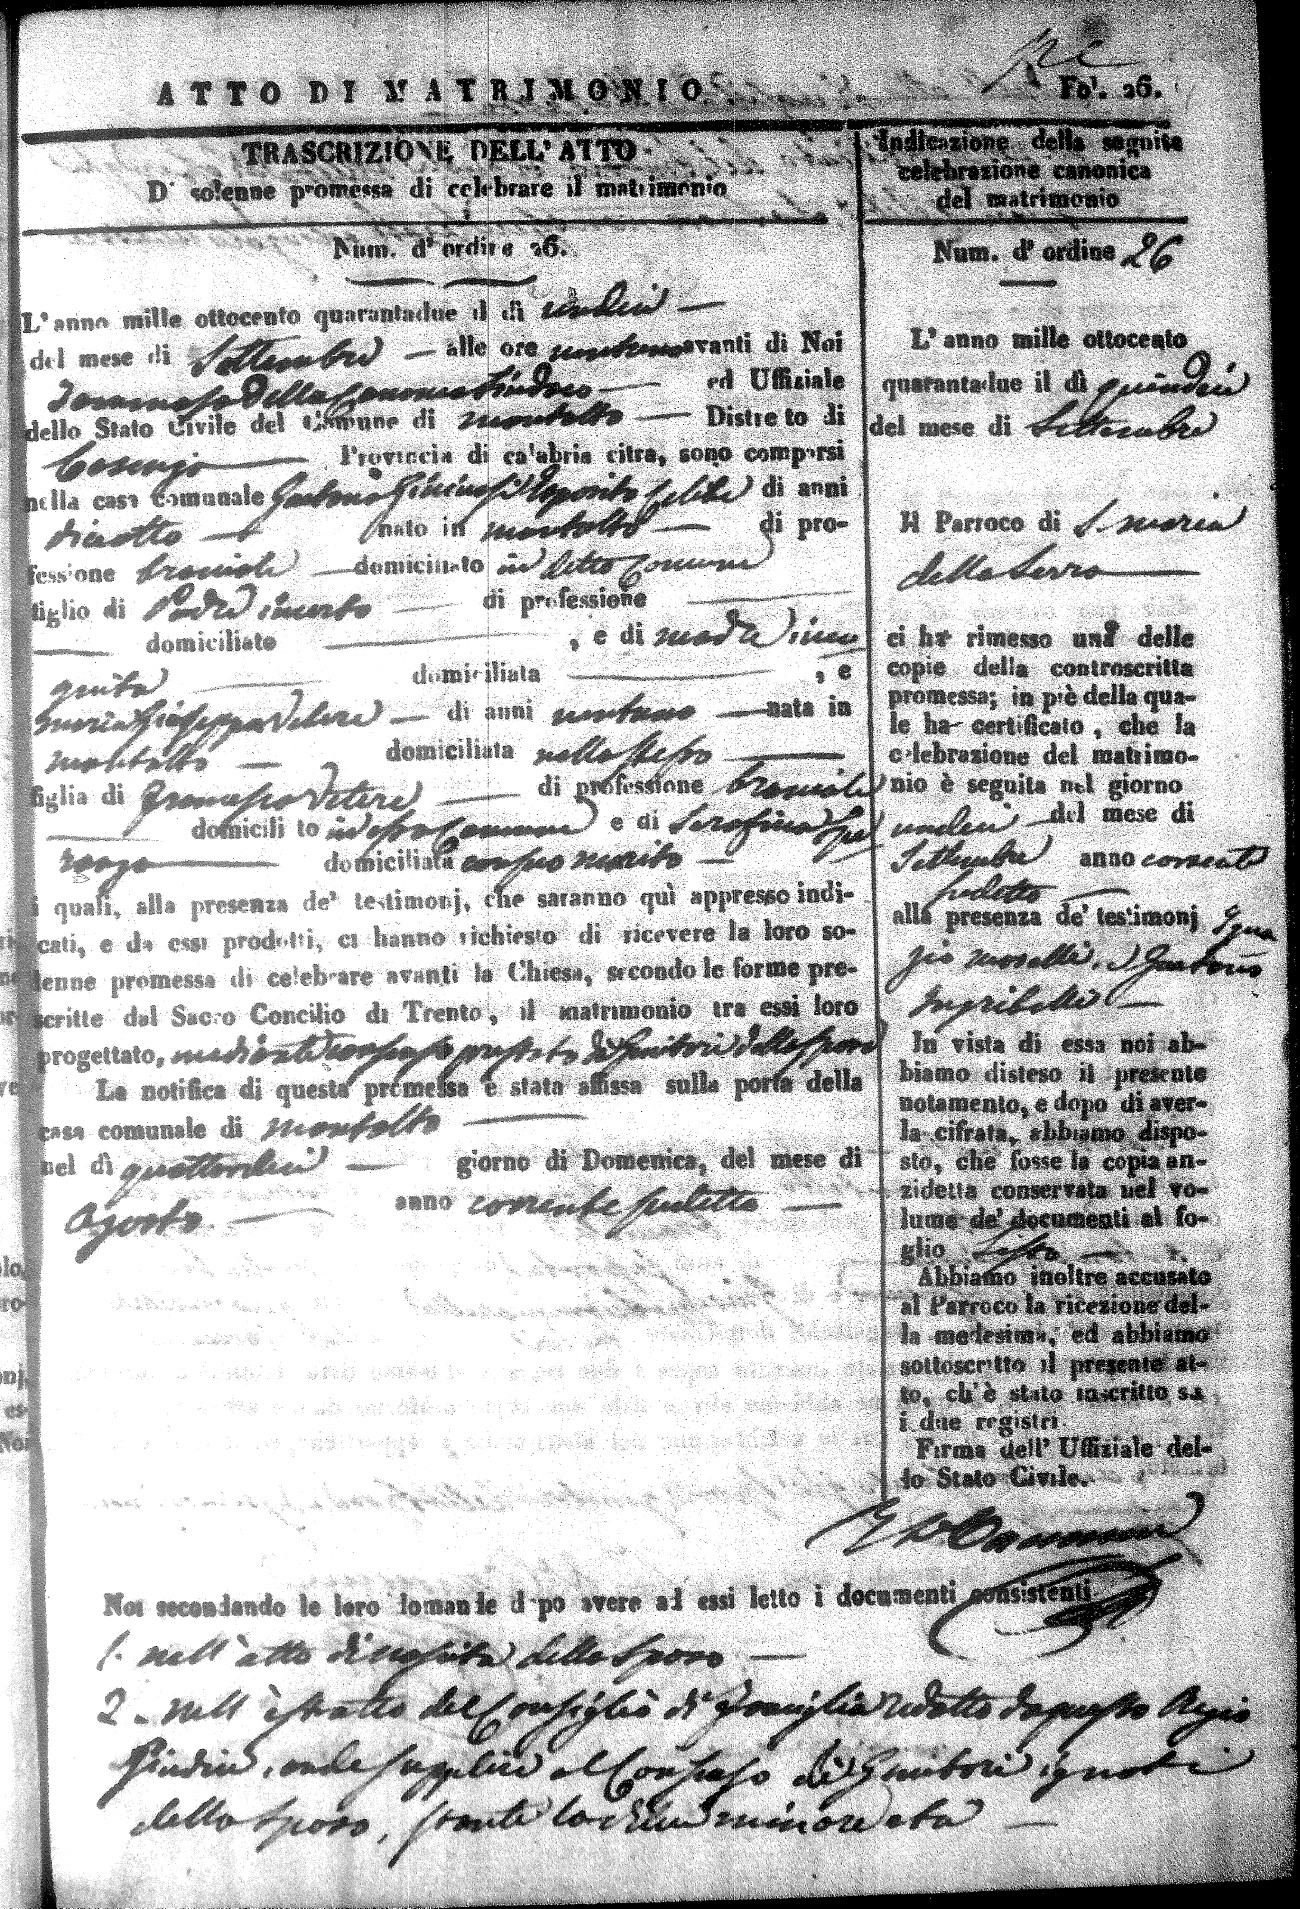 ATTO DI MATRIMONIO
Fo'. 26.
TRASCRIZIONE DELL' ATTO
D' solenne promessa di celebrare il matrimonio
Num. d' ordine 26.
L' anno mille ottocento quarantadue il dì undici
del mese di Settembre alle ore ventuno avanti di Noi
Tommaso della Cananea Sindaco ed Uffiziale
dello Stato Civile del Comune di montalto Distretto di
Cosenza Provincia di calabria citra, sono comparsi
nella casa comunale Gaetano Esposito Celibe di anni
diciotto nato in montalto di pro-
fessione bracciale domiciliato in detto Comune
figlio di Padre incerto di professione
domiciliato , e di madre inco
gnita domiciliata , e
Maria Giuseppa Vetere di anni ventuno nata in
montalto domiciliata nello stesso
figlia di Francesco Vetere di professione bracciale
domicili to in esso Comune e di Serafina Spe
ranza domiciliata con suo marito
i quali, alla presenza de' testimonj, che saranno quì appresso indi-
cati, e da essi prodotti, ci hanno richiesto di ricevere la loro so-
lenne promessa di celebrare avanti la Chiesa, secondo le forme pre-
scritte dal Sacro Concilio di Trento, il matrimonio tra essi loro
progettato, mediante consenso prestato da Genitori della sposa
La notifica di questa promessa è stata affissa sulla porta della
casa comunale di montalto
nel dì quattordici giorno di Domenica, del mese di
Agosto anno corrente sudetto
Indicazione della seguita
celebrazione canonica
del matrimonio
Num. d' ordine 26
L' anno mille ottocento
quarantadue il dì quindici
del mese di Settembre
Il Parroco di S. maria
della Serra
ci ha rimesso una delle
copie della controscritta
promessa; in piè della qua-
le ha certificato, che la
celebrazione del matrimo-
nio è seguita nel giorno
undici del mese di
Settembre anno corrente
sudetto
alla presenza de' testimonj Igna
zio e Gaetano
In vista di essa noi ab-
biamo disteso il presente
notamento, e dopo di aver-
la cifrata, abbiamo dispo-
sto, che fosse la copia an-
zidetta conservata nel vo-
lume de' documenti al fo-
glio
Abbiamo inoltre accusato
al Parroco la ricezione del-
la medesima, ed abbiamo
sottoscritto il presente at-
to, ch' è stato inscritto su
i due registri
Firma dell' Uffiziale del-
lo Stato Civile.
Noi secondando le loro domande dopo avere ad essi letto i documenti consistenti
1. nell' atto di nascita dello sposo
2. nell' estratto del Consiglio di famiglia redatto da questo Regio
Giudice, onde supplire al Consenso de' Genitori ignoti
dello sposo, stante la di lui minore età